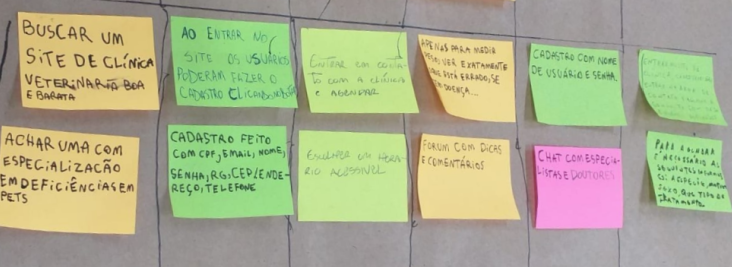 BUSCAR UM
SITE DE CLÍNICA
VETERINARIA BOA
E BARATA
AO ENTRAR NO
SITE OS USUÁRIOS
PODERAM FAZER O
CADASTRO CLICANDO
ENTRAR EM CONTA
TO COM A CLÍNICA
E AGENDAR
APENAS PARA MEDIR
VER EXATAMENTE
ESTÁ ERRADO, SE
DOENÇA...
CADASTRO COM NOME
DE USUÁRIO E SENHA.
ACHAR UMA COM
ESPECIALIZAÇÃO
EM DEFICIÊNCIAS EM
PETS
CADASTRO FEITO
COM CPF, EMAIL, NOME,
SENHA, RG, CEP/ENDE-
REÇO, TELEFONE
ESCOLHER UM HORA
RIO ACESSÍVEL
FORUM COM DICAS
E COMENTÁRIOS
CHAT COM ESPECIA-
LISTAS E DOUTORES
PARA
É NECESSÁRIO AS
SEXO, QUE TIPO DE
TRATAMENTO